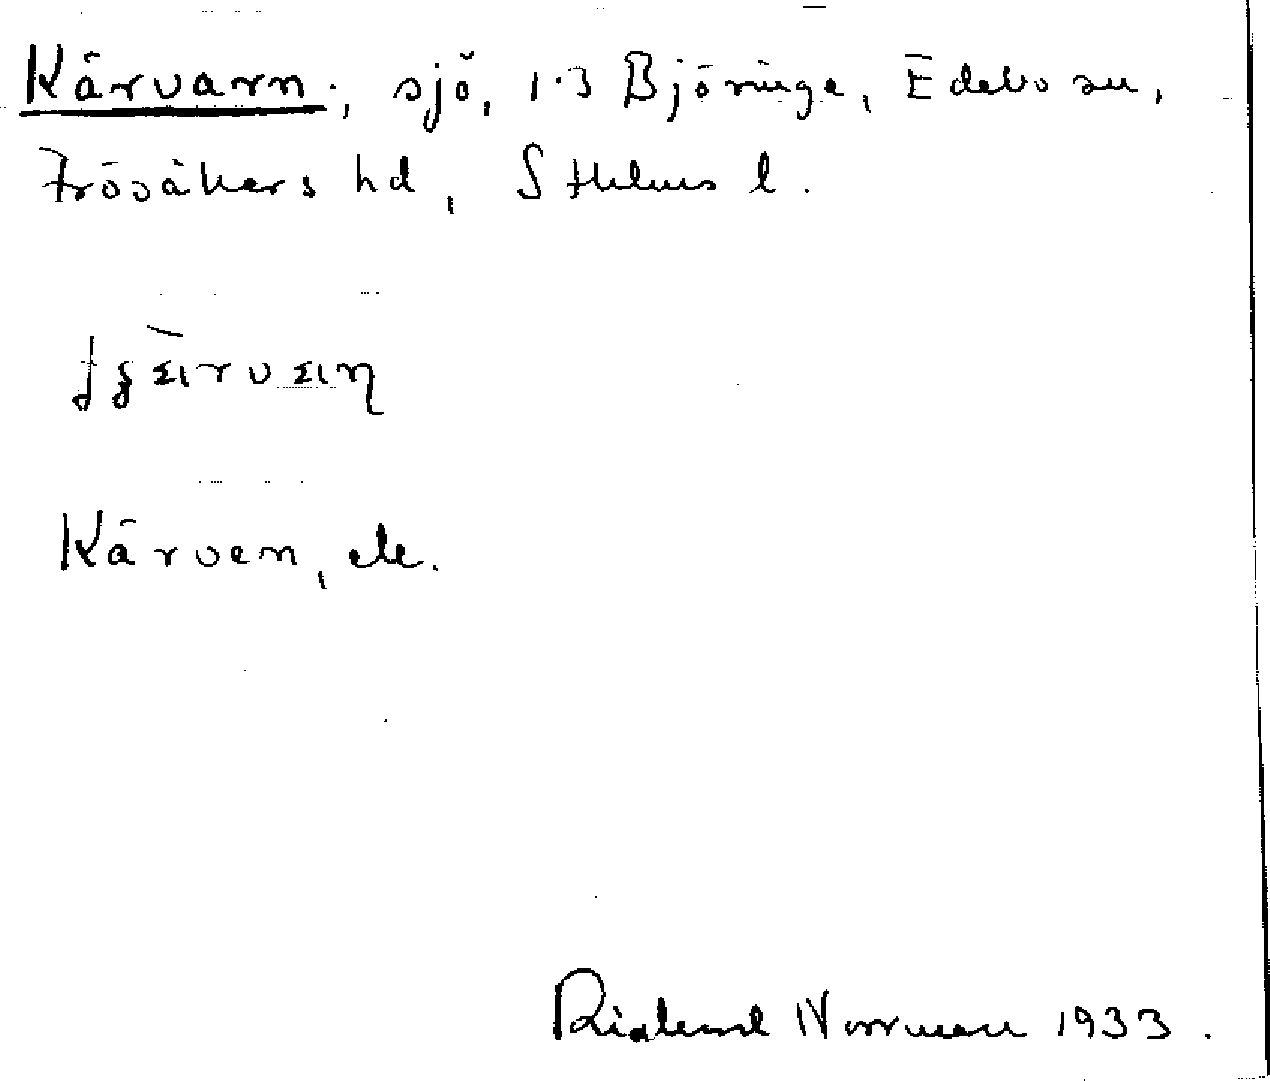 Kärvarn, sjö, 1:3 Björinge, Edebo sn,
Frösåkers hd, Sthlms l.
Kärven, etc.
Rickard Norrman 1933.